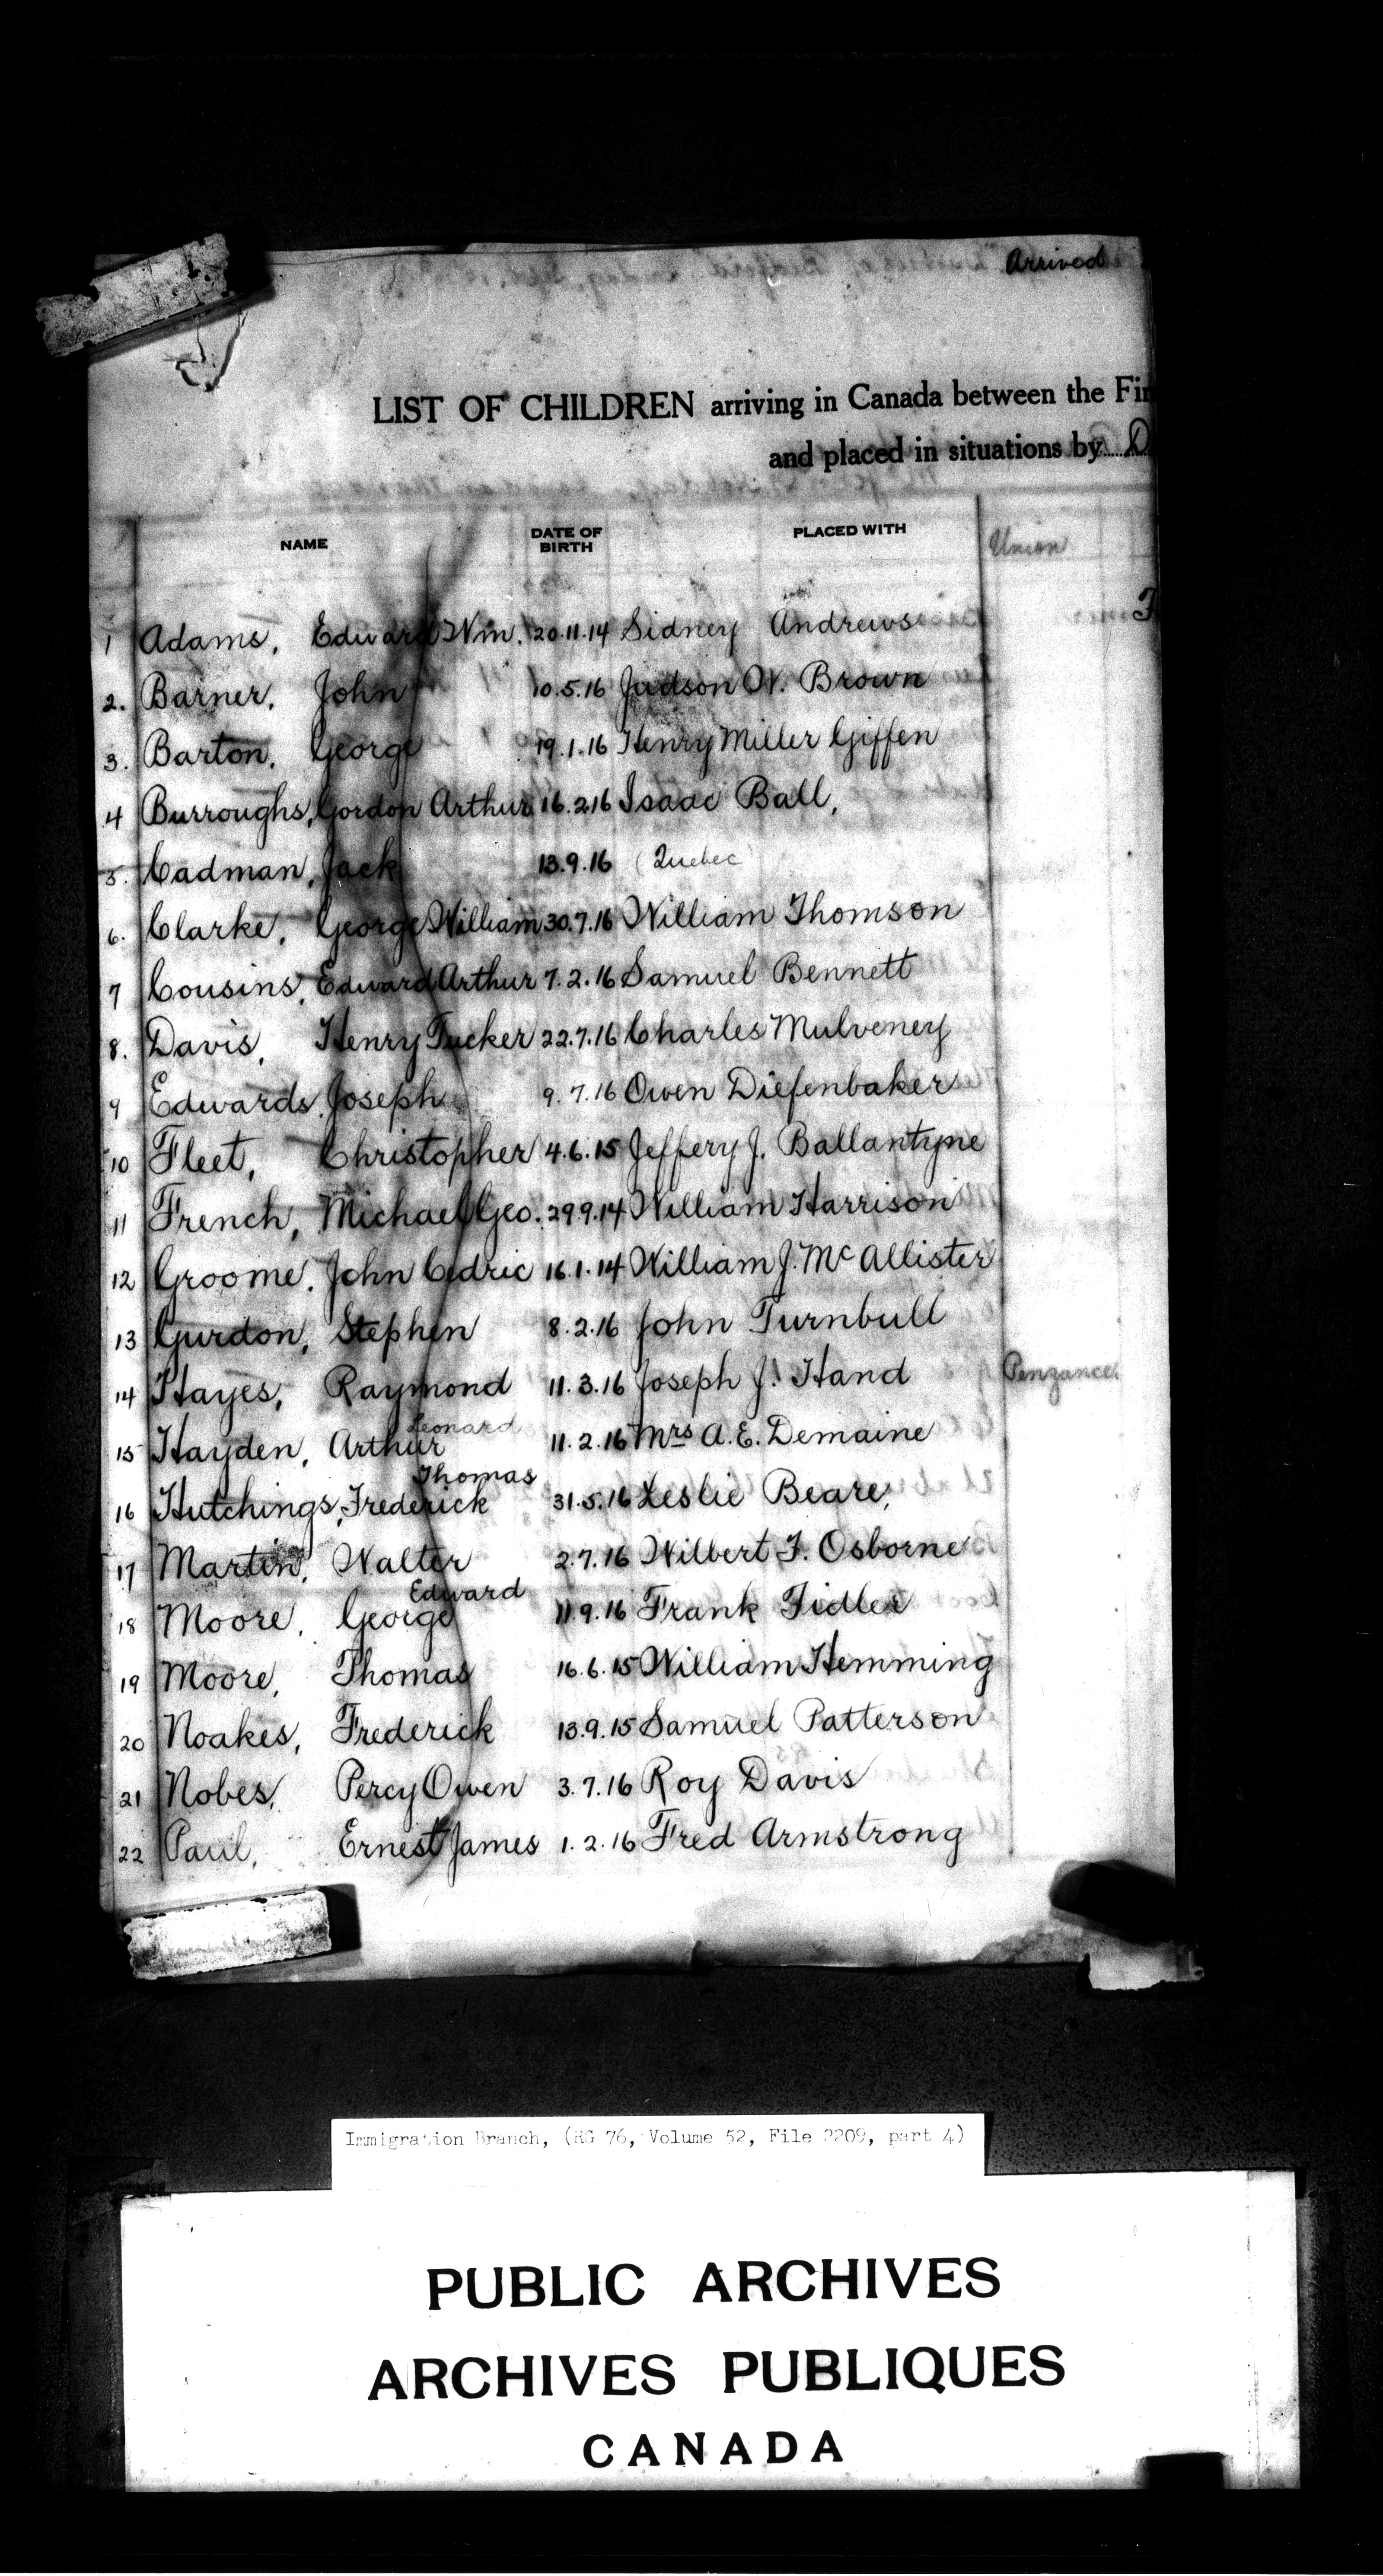 Arrived
LIST OF CHILDREN arriving in Canada between the Fir
and placed in situations by D
NAME DATE OF BIRTH PLACED WITH Union
1 Adams, Edward Wm. 20.11.14 Sidney Andrews
2. Barner, John 10.5.16 Judson W. Brown
3. Barton, George 19.1.16 Henry Miller Giffen
4 Burroughs, Gordon Arthur 16.2.16 Isaac Ball,
5. Cadman, Jack 13.9.16 (Quebec)
6. Clarke, George William 30.7.16 William Thomson
7 Cousins, Edward Arthur 7.2.16 Samuel Bennett
8. Davis, Henry Tucker 22.7.16 Charles Mulveney
9 Edwards, Joseph 9.7.16 Owen Diefenbaker
10 Fleet, Christopher 4.6.15 Jeffery J. Ballantyne
11 French, Michael Geo. 29.9.14 William Harrison
12 Groome, John Cedric 16.1.14 William J. McAllister
13 Gurdon, Stephen 8.2.16 John Turnbull
14 Hayes, Raymond 11.3.16 Joseph J. Hand Penzance
15 Hayden, Arthur Leonard 11.2.16 Mrs A.E. Demaine
16 Hutchings, Frederick Thomas 31.5.16 Leslie Beare,
17 Martin, Walter 2.7.16 Wilbert F. Osborne
18 Moore, George Edward 11.9.16 Frank Fidler
19 Moore, Thomas 16.6.15 William Hemming
20 Noakes, Frederick 13.9.15 Samuel Patterson
21 Nobes, Percy Owen 3.7.16 Roy Davis
22 Paul, Ernest James 1.2.16 Fred Armstrong
Immigration Branch, (RG 76, Volume 52, File 2209, part 4)
PUBLIC ARCHIVES
ARCHIVES PUBLIQUES
CANADA